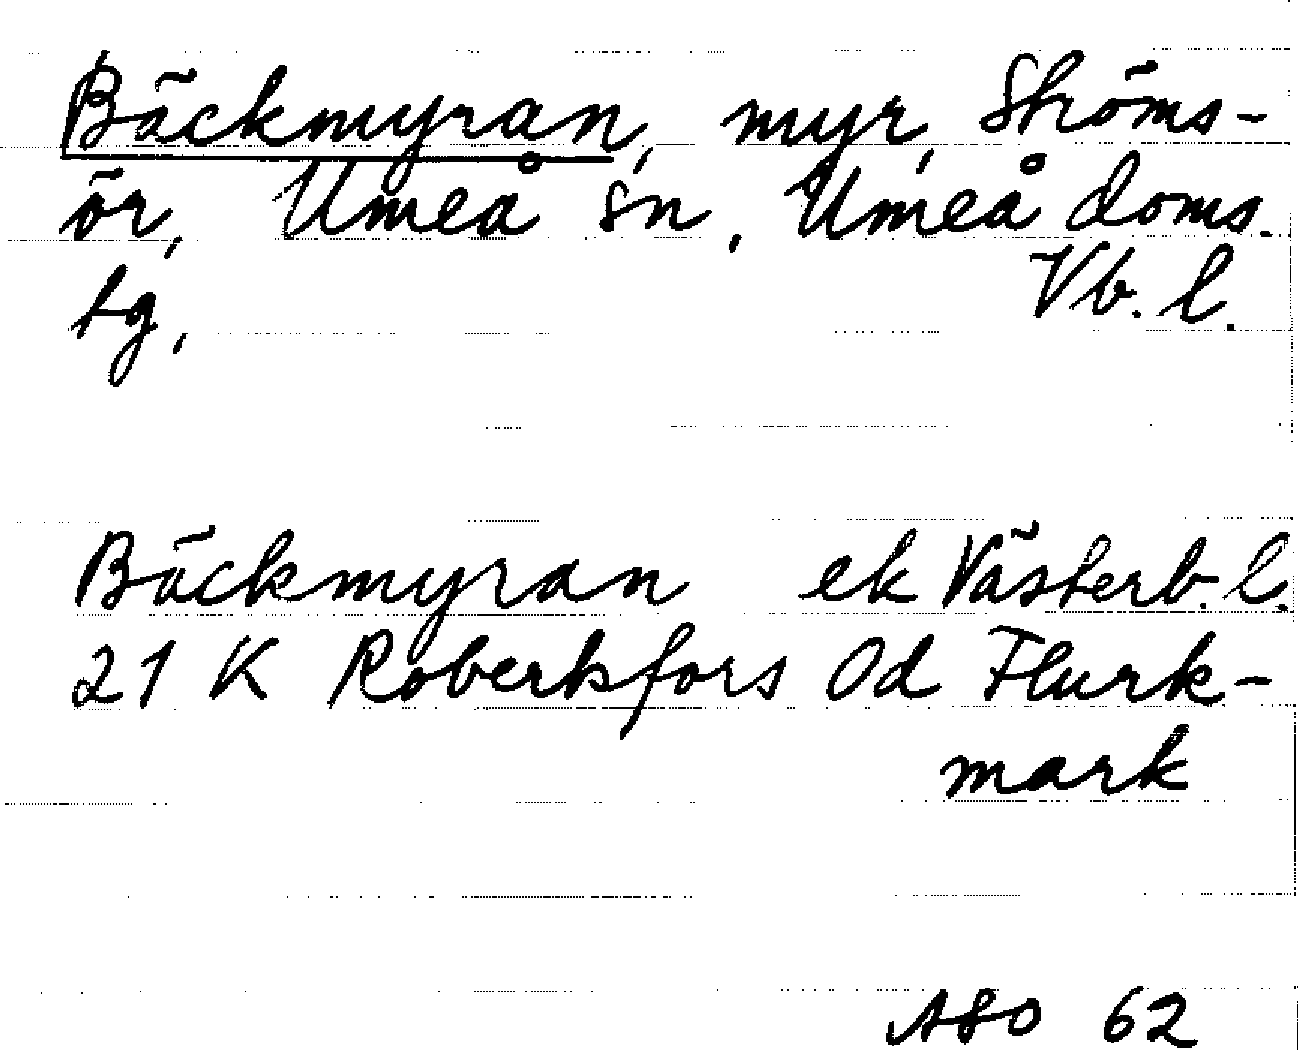 Bäckmyran, myr, Ströms-
ör, Umeå sn, Umeå doms.
tg, Vb. l.
Bäckmyran ek Västerb. l.
21 K Robertsfors 0d Flurk-
mark
ASO 62